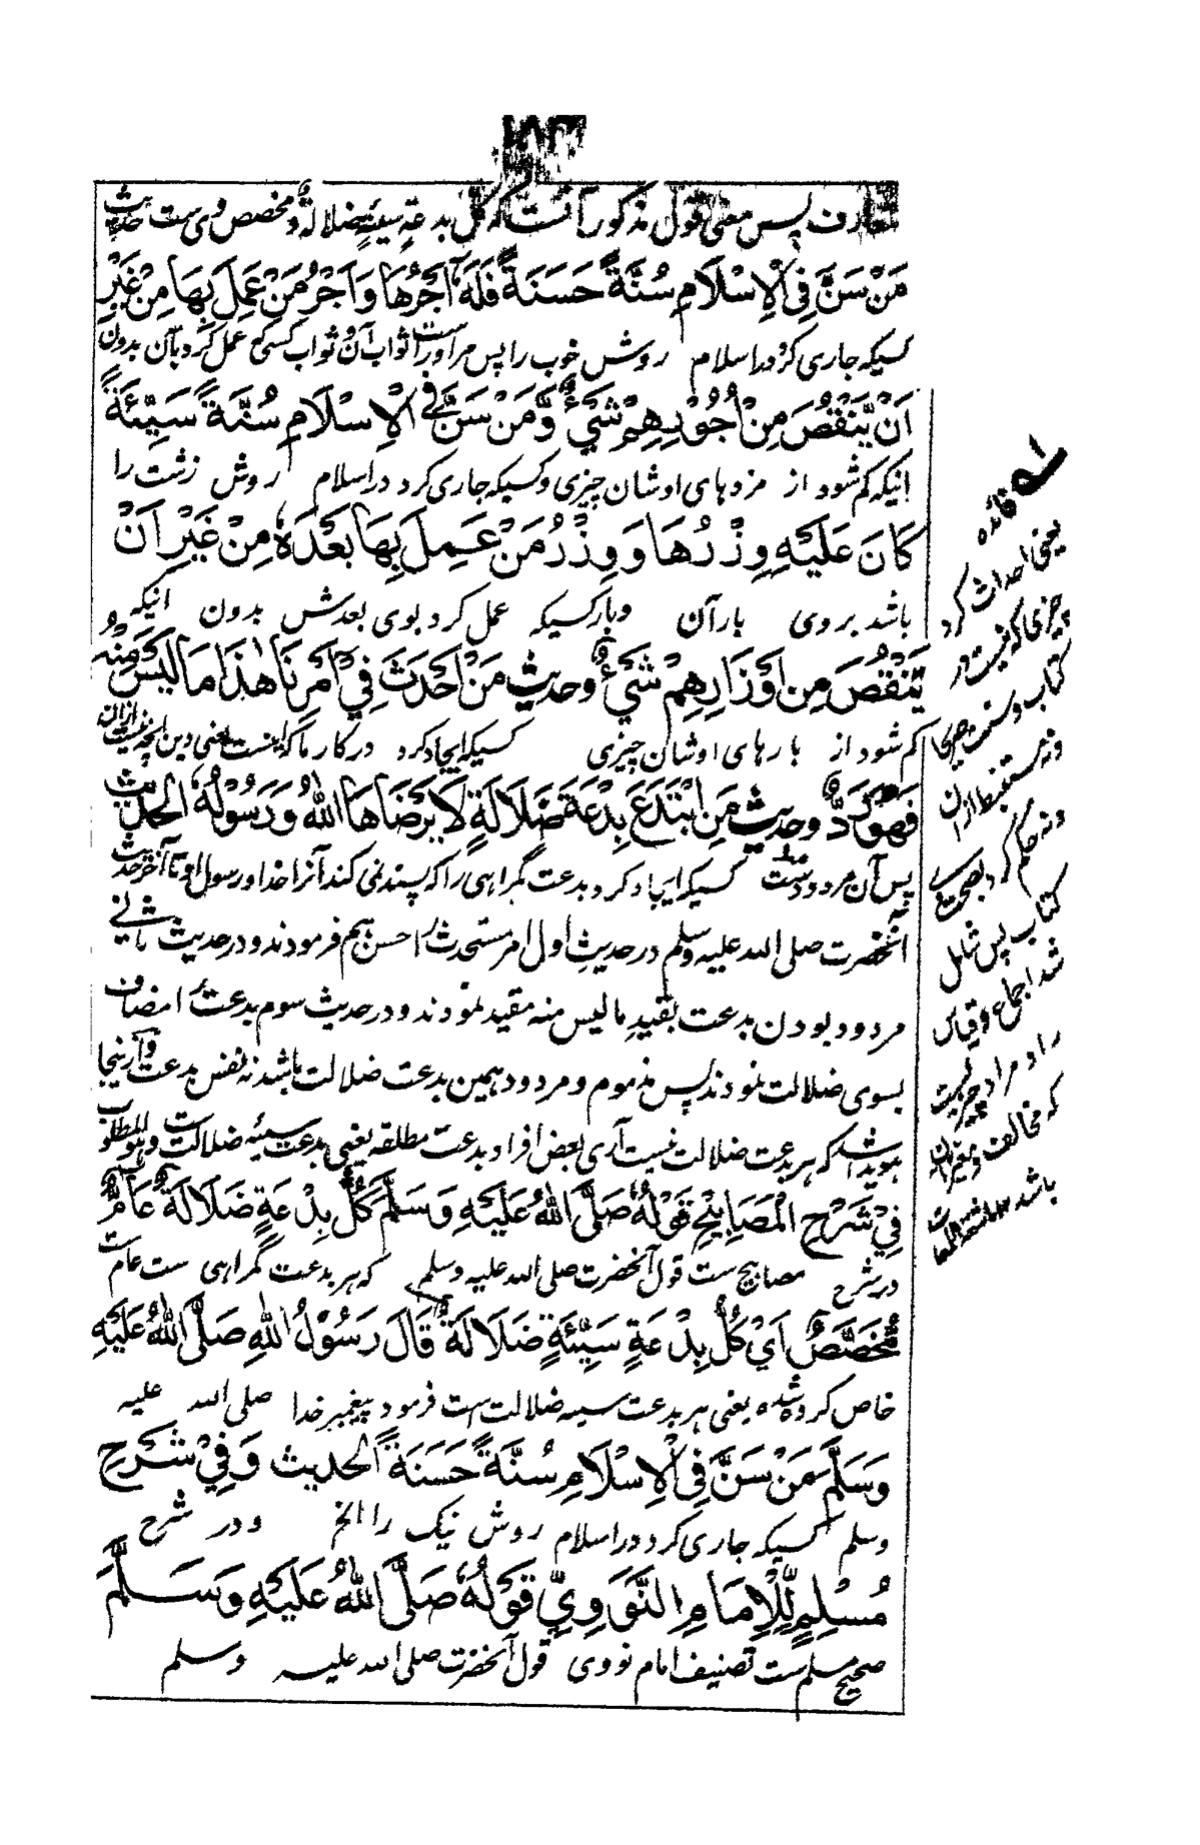 ۱۸۳
متعارف پس معنی قول مذکور آنست که کل بدعةٍ سیئةٍ ضلالةٌ و مخصص وی ست حدیث
مَنْ سَنَّ فِي الْاِسْلَامِ سُنَّةً حَسَنَةً فَلَهٗ اَجْرُهَا وَاَجْرُ مَنْ عَمِلَ بِهَا مِنْ غَيْرِ
کسیکه جاری کرد در اسلام روش خوب را پس مر اوراست ثواب آن و ثواب کسی که عمل کرد بآن بدون
اَنْ يَّنْقُصَ مِنْ اُجُوْرِهِمْ شَيْءٌ وَّمَنْ سَنَّ فِي الْاِسْلَامِ سُنَّةً سَيِّئَةً
اینکه کم شود از مزدهای اوشان چیزی و کسیکه جاری کرد در اسلام روش زشت را
كَانَ عَلَيْهِ وِزْرُهَا وَوِزْرُ مَنْ عَمِلَ بِهَا بَعْدَهٗ مِنْ غَيْرِ اَنْ
باشد بروی بار آن و بار کسیکه عمل کرد بوی بعدش بدون اینکه
يَّنْقُصَ مِنْ اَوْزَارِهِمْ شَيْءٌ وحدیث مَنْ اَحْدَثَ فِيْ اَمْرِنَا هٰذَا مَا لَيْسَ مِنْهُ
کم شود از بارهای اوشان چیزی کسیکه ایجاد کرد در کار ما که اینست یعنی دین آنچه نیست از آن
فَهُوَ رَدٌّ وحدیث مَنِ ابْتَدَعَ بِدْعَةَ ضَلَالَةٍ لَا يَرْضَاهَا اللهُ وَرَسُوْلُهُ الحدیث
پس آن مردودست کسیکه ایجاد کرد بدعت گمراهی را که پسند نمی کند آنرا خدا و رسول او تا آخر حدیث
آنحضرت صلی الله علیه وسلم در حدیث اول امر مستحدث را حسن هم فرمودند و در حدیث ثانی
مردود بودن بدعت بقید ما لیس منه مقید نمودند و در حدیث سوم بدعت را مضاف
بسوی ضلالت نمودند پس مذموم و مردود همین بدعت ضلالت باشد نه نفس بدعت و از ینجا
هویدا شد که هر بدعت ضلالت نیست آری بعض افراد بدعت مطلقه یعنی بدعت سیئه ضلالت ست وهو المطلوب
فِيْ شَرْحِ الْمَصَابِيْحِ قَوْلُهٗ صَلَّى اللهُ عَلَيْهِ وَسَلَّمَ كُلُّ بِدْعَةٍ ضَلَالَةٌ عَامٌّ
در شرح مصابیح ست قول آنحضرت صلی الله علیه وسلم که هر بدعت گمراهی ست عام ست
مُّخَصَّصٌ اَيْ كُلُّ بِدْعَةٍ سَيِّئَةٍ ضَلَالَةٌ قَالَ رَسُوْلُ اللهِ صَلَّى اللهُ عَلَيْهِ
خاص کرده شده یعنی هر بدعت سیئه ضلالت است فرمود پیغمبر خدا صلی الله علیه
وَسَلَّمَ مَنْ سَنَّ فِي الْاِسْلَامِ سُنَّةً حَسَنَةً الحدیث وَفِيْ شَرْحِ
وسلم کسیکه جاری کرد در اسلام روش نیک را الخ و در شرح
مُسْلِمٍ لِّلْاِمَامِ النَّوَوِيِّ قَوْلُهٗ صَلَّى اللهُ عَلَيْهِ وَسَلَّمَ
صحیح مسلم ست تصنیف امام نووی قول آنحضرت صلی الله علیه وسلم
له فائده
یعنی احداث کرد
چیزی که نیست در
کتاب و سنت صریحا
و نه مستنبط از آن
و نه حکم کرد بصحت
کتاب پس شامل
شد اجماع و قیاس
را و مراد چیزیست
که مخالف و مغیر آن
باشد اشعة اللمعات